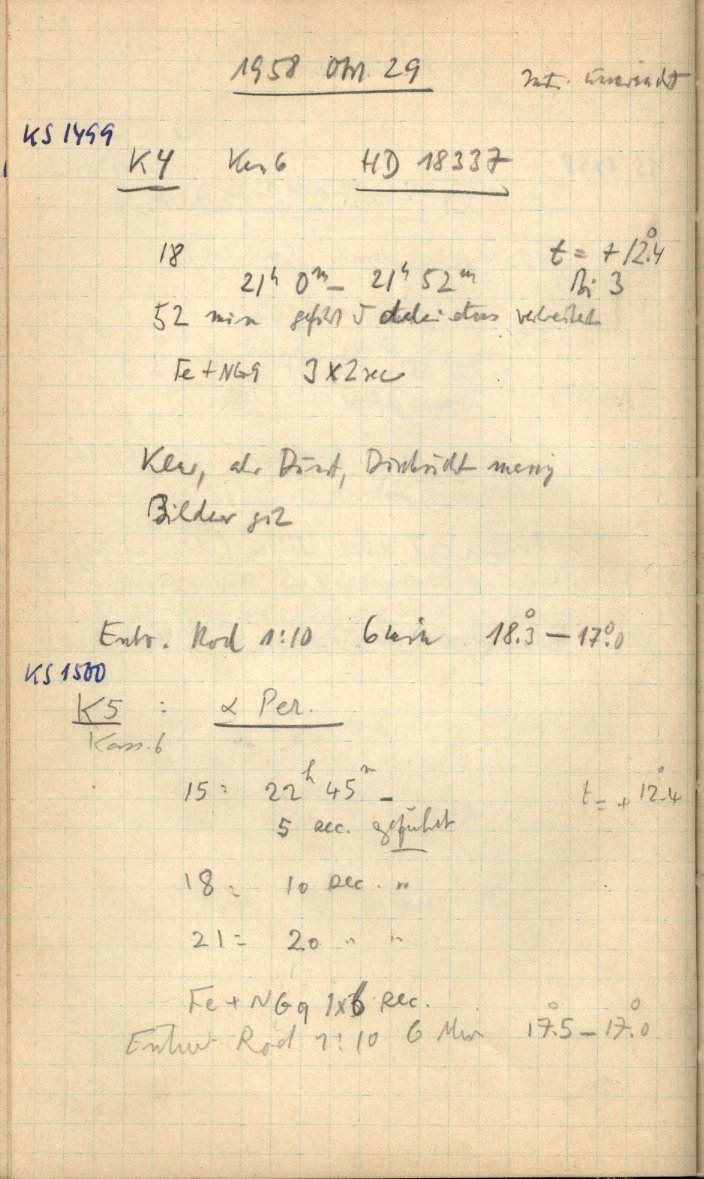 1958 Okt. 29
KS 1499
K4 Kas 6 HD 18337
18 t = + 12°.4
21ʰ 0ᵐ – 21ʰ 52ᵐ Bi 3
52 min geführt 5 dabei etwas verbreitert
Fe + NG9 3 x 2 sec
Klar, Dunst, Durchsicht mässig
Bilder gut
Entw. Rod 1:10 6 min 18°.3 – 17°.0
KS 1500
K5 : α Per.
Kass. 6
15 = 22ʰ 45ᵐ – t = + 12°.4
5 sec. geführt
18 = 10 sec. "
21 = 20 " "
Fe + NG9 1x6 sec.
Entw Rod 1:10 6 Min 17°.5 – 17°.0